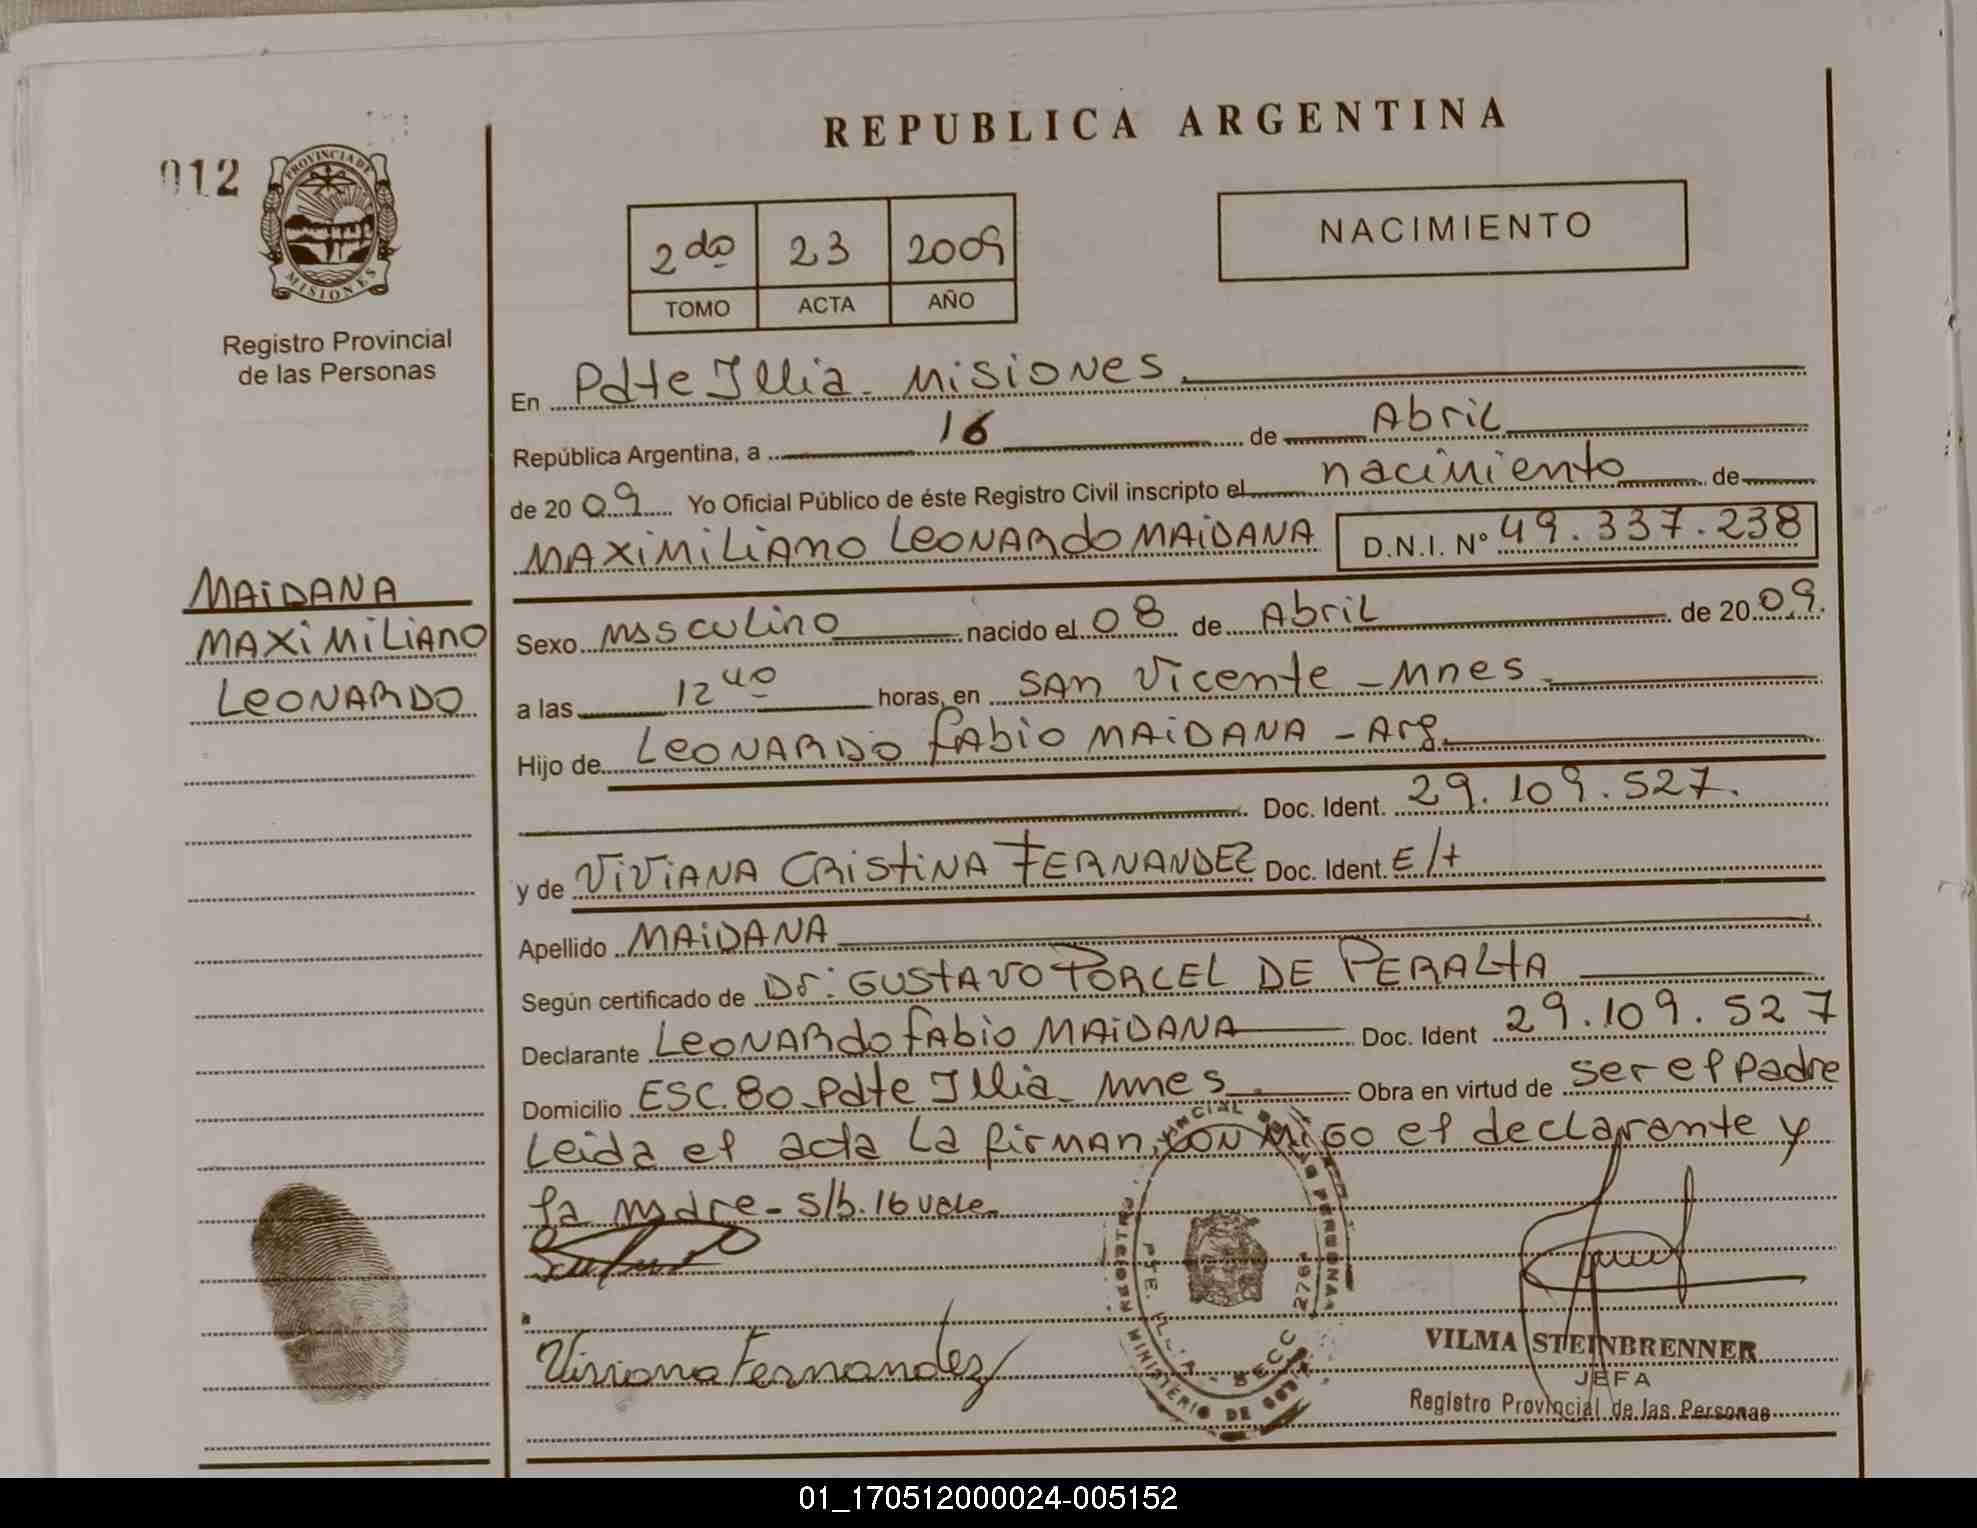 REPUBLICA ARGENTINA
012
PROVINCIA DE
MISIONES
Registro Provincial
de las Personas
2do 23 2009
TOMO ACTA AÑO
NACIMIENTO
MAIDANA
MAXIMILIANO
LEONARDO
En Pdte Illia - Misiones
República Argentina, a 16 de Abril
de 2009 Yo Oficial Público de éste Registro Civil inscripto el nacimiento de
MAXIMILIANO LEONARDO MAIDANA D.N.I. N° 49.337.238
Sexo masculino nacido el 08 de Abril de 2009.
a las 12 40 horas, en SAN Vicente - Mnes
Hijo de LEONARDO FABIO MAIDANA - Arg.
Doc. Ident. 29.109.527.
y de VIVIANA CRISTINA FERNANDEZ Doc. Ident. E/t
Apellido MAIDANA
Según certificado de Dr: GUSTAVO PORCEL DE PERALTA
Declarante LEONARDO FABIO MAIDANA Doc. Ident 29.109.527
Domicilio ESC. 80 Pdte Illia - Mnes Obra en virtud de ser el Padre
Leida el acta La firman, CON MIGO el declarante y
la madre - s/b. 16 vale
Viviana Fernandez
VILMA STEINBRENNER
JEFA
Registro Provincial de las Personas
01_170512000024-005152